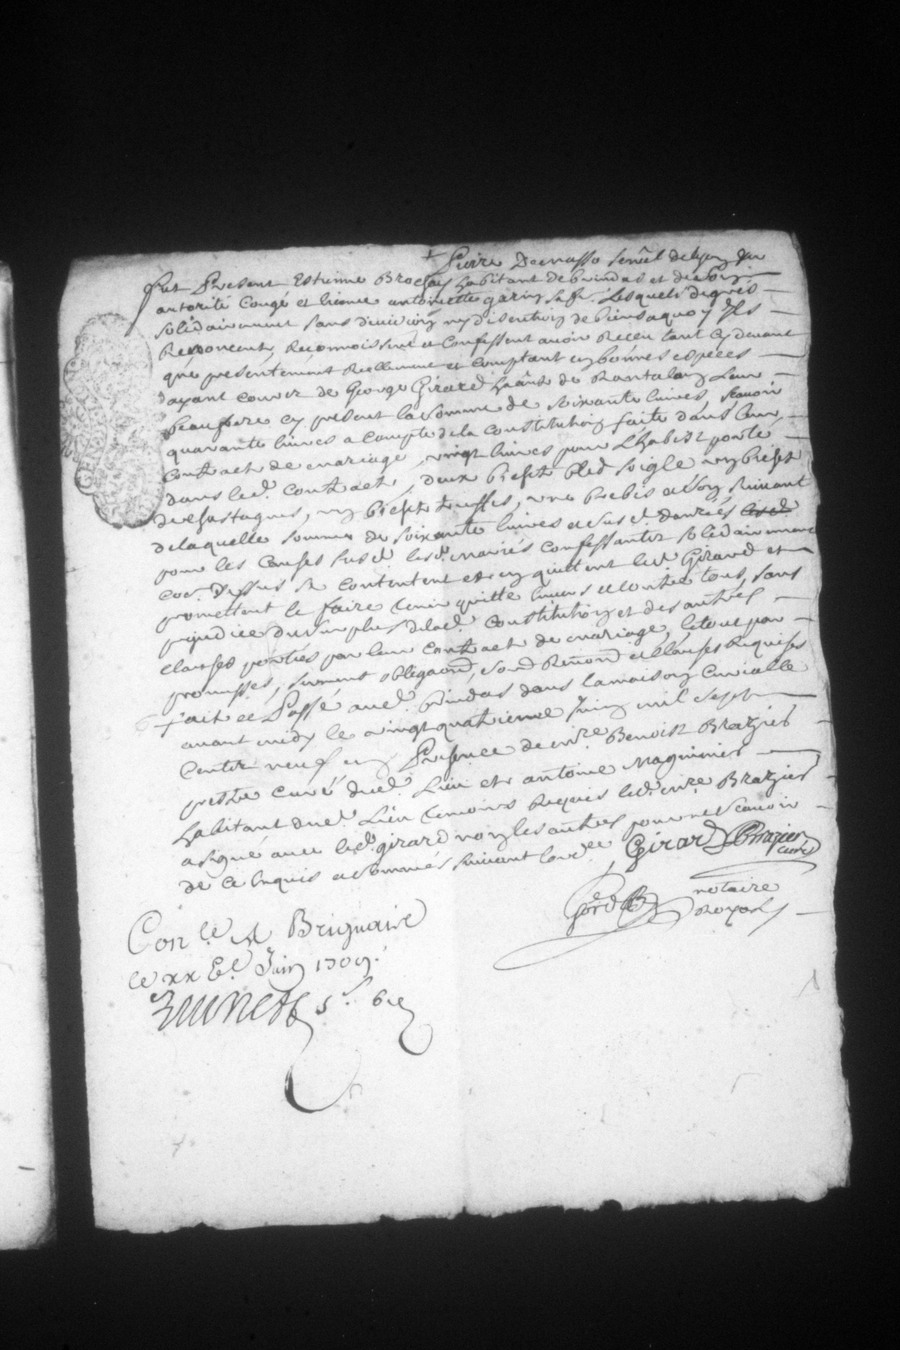 fut Present Estienne Brochay habitant de brindas et de son
autorité Congé et licence antoinette garin sa fe. Lesquels de grés
solidairement sans division ny discution de biens a quoy Ils
Renoncent, Reconnoissent et Confessent avoir Receu tant cy devant
que presentement Reellement et Comptant en bonnes especes
de George Girard habant. de Rantalon Leur
beaupere cy present la somme de soixante livres, scavoir
quarante livres a Compte de la Constitution faitte dans leur
Contract de mariage, vingt livres pour L'habist porté
dans led. Contract, deux bichet bled soigle un bichet
de chastagnes, un bichet truffes, une brebis et son suivant
de laquelle somme de soixante livres et susd. danrées
pour les Causes susd. lesd. mariés Confessantz solidairement
Coe. Dessus se Contentent et en quittent led. Girard et
promettent le faire tenir quitte envers et Contre tous, sans
prejudice du surplus de lad. Constitution et des autres
clauses portées par leur Contract de mariage, le tout par
promesses, serment obligaond, soud. Renond. et clauses Requises
fait et Passé aud. brindas dans la maison Curialle
avant midy le vingt quatrieme Juin mil sept
Centz neuf en Presence de mre. Benoist Brazier
prestre Curé dud. Lieu et antoine Magninier
habitant dud. Lieu temoins Requis led. mre. Brazier
a signé avec led. girard non les autres pour ne scavoir
de ce Enquis et sommés suivant lord.ce
Girard Brazier
curé
notaire
Royal
Con.le A Brignais
le xx 6e. Juin 1709.